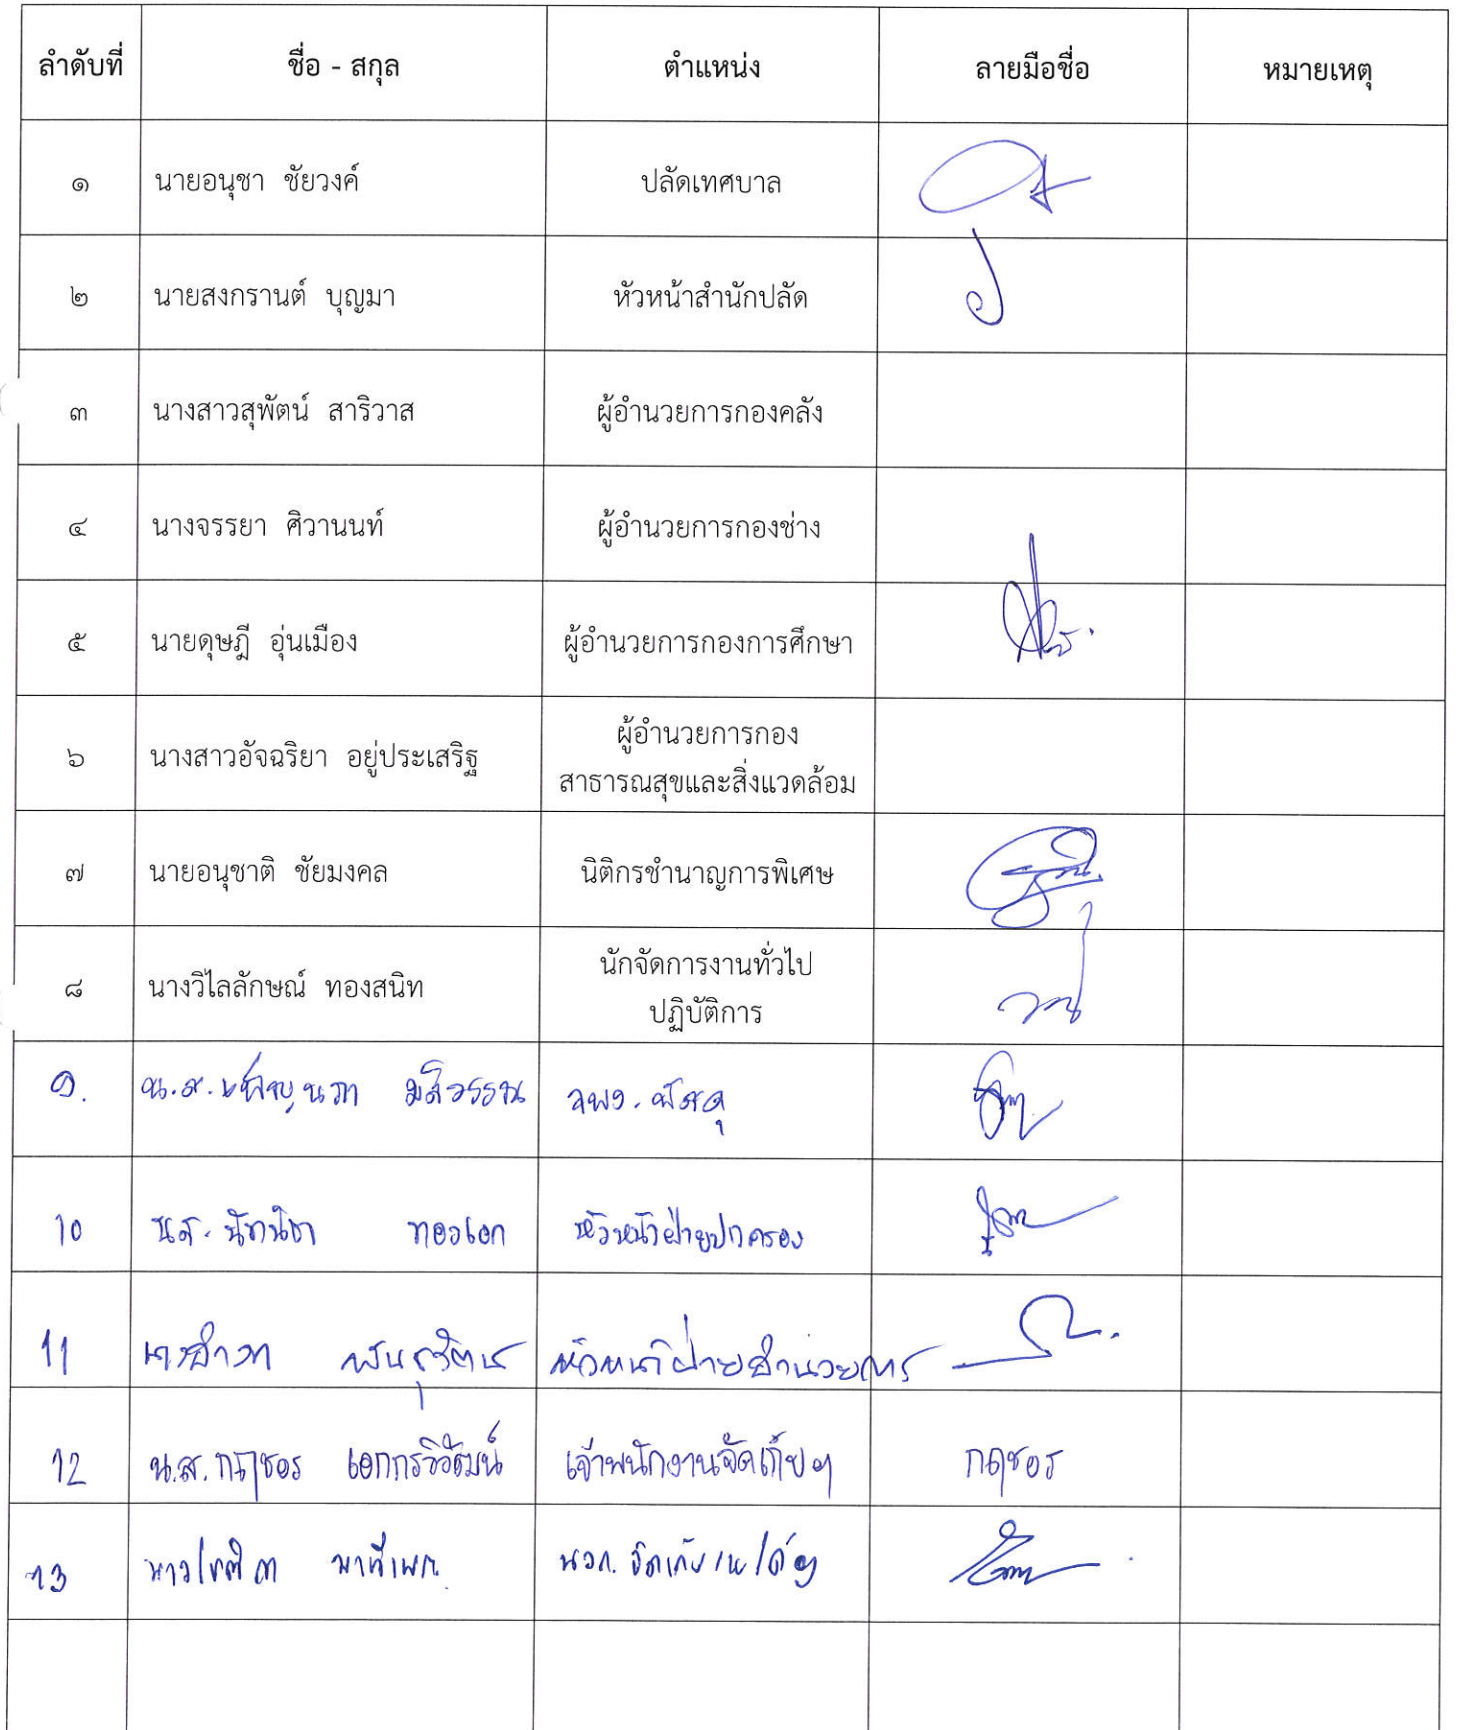 ลำดับที่ ชื่อ - สกุล ตำแหน่ง ลายมือชื่อ หมายเหตุ
๑ นายอนุชา ชัยวงค์ ปลัดเทศบาล
๒ นายสงกรานต์ บุญมา หัวหน้าสำนักปลัด
๓ นางสาวสุพัตน์ สาริวาส ผู้อำนวยการกองคลัง
๔ นางจรรยา ศิวานนท์ ผู้อำนวยการกองช่าง
๕ นายดุษฎี อุ่นเมือง ผู้อำนวยการกองการศึกษา
๖ นางสาวอัจฉริยา อยู่ประเสริฐ ผู้อำนวยการกอง
สาธารณสุขและสิ่งแวดล้อม
๗ นายอนุชาติ ชัยมงคล นิติกรชำนาญการพิเศษ
๘ นางวิไลลักษณ์ ทองสนิท นักจัดการงานทั่วไป
ปฏิบัติการ
น.ส. จพง. พัสดุ
10 น.ส. ทองเอก หัวหน้าฝ่ายปกครอง
11 หัวหน้าฝ่ายอำนวยการ
12 น.ส. กฤชอร เอกกรวิวัฒน์ เจ้าพนักงานจัดเก็บฯ กฤชอร
13 นวก. จัดเก็บรายได้ฯ